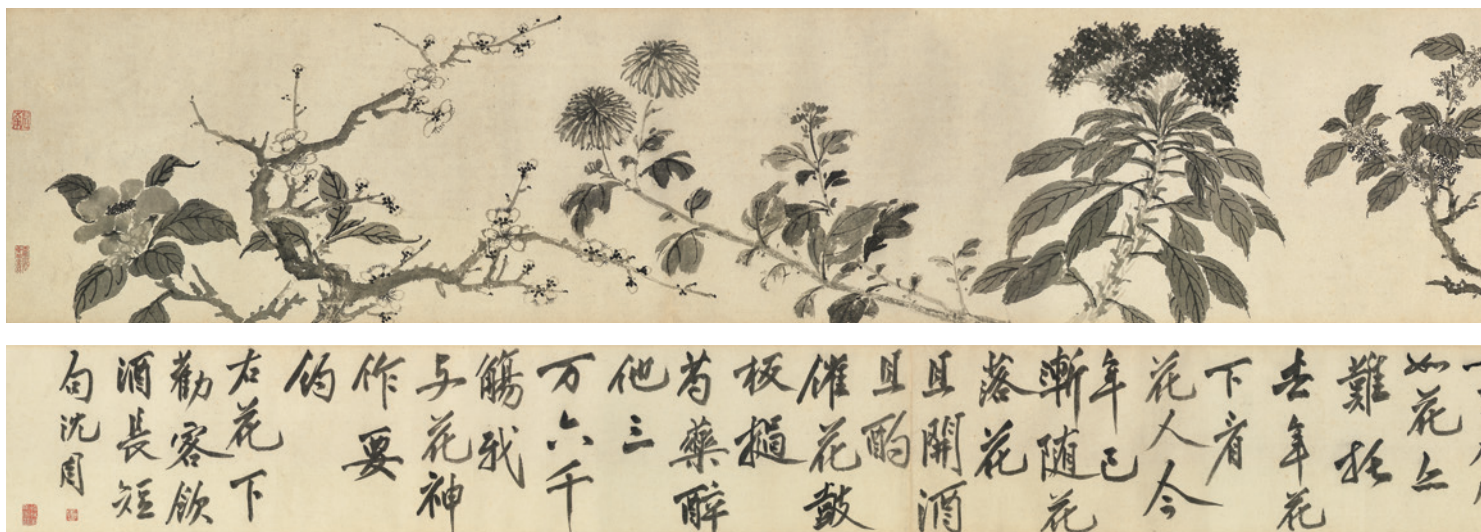 如花
難
去年花
下看
花人今
年已
漸随花
落花
且開酒
且酌
催花鼓
板撾
芍藥醉
他三
万六千
觴我
与花神
作要
約
右花下
勸客飲
酒長短
句沈周